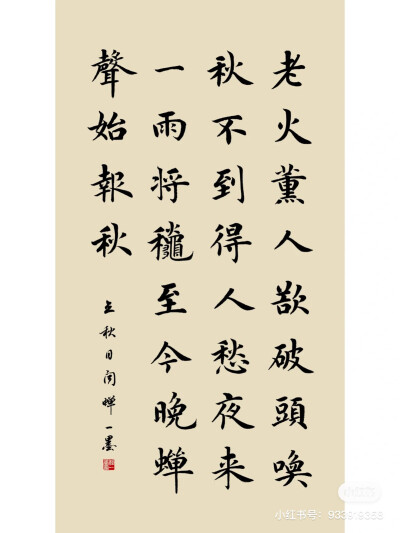 老火薰人欲破頭喚
秋不到得人愁夜来
一雨将龝至今晚蝉
聲始報秋
立秋日闻蝉一墨
小红书号：